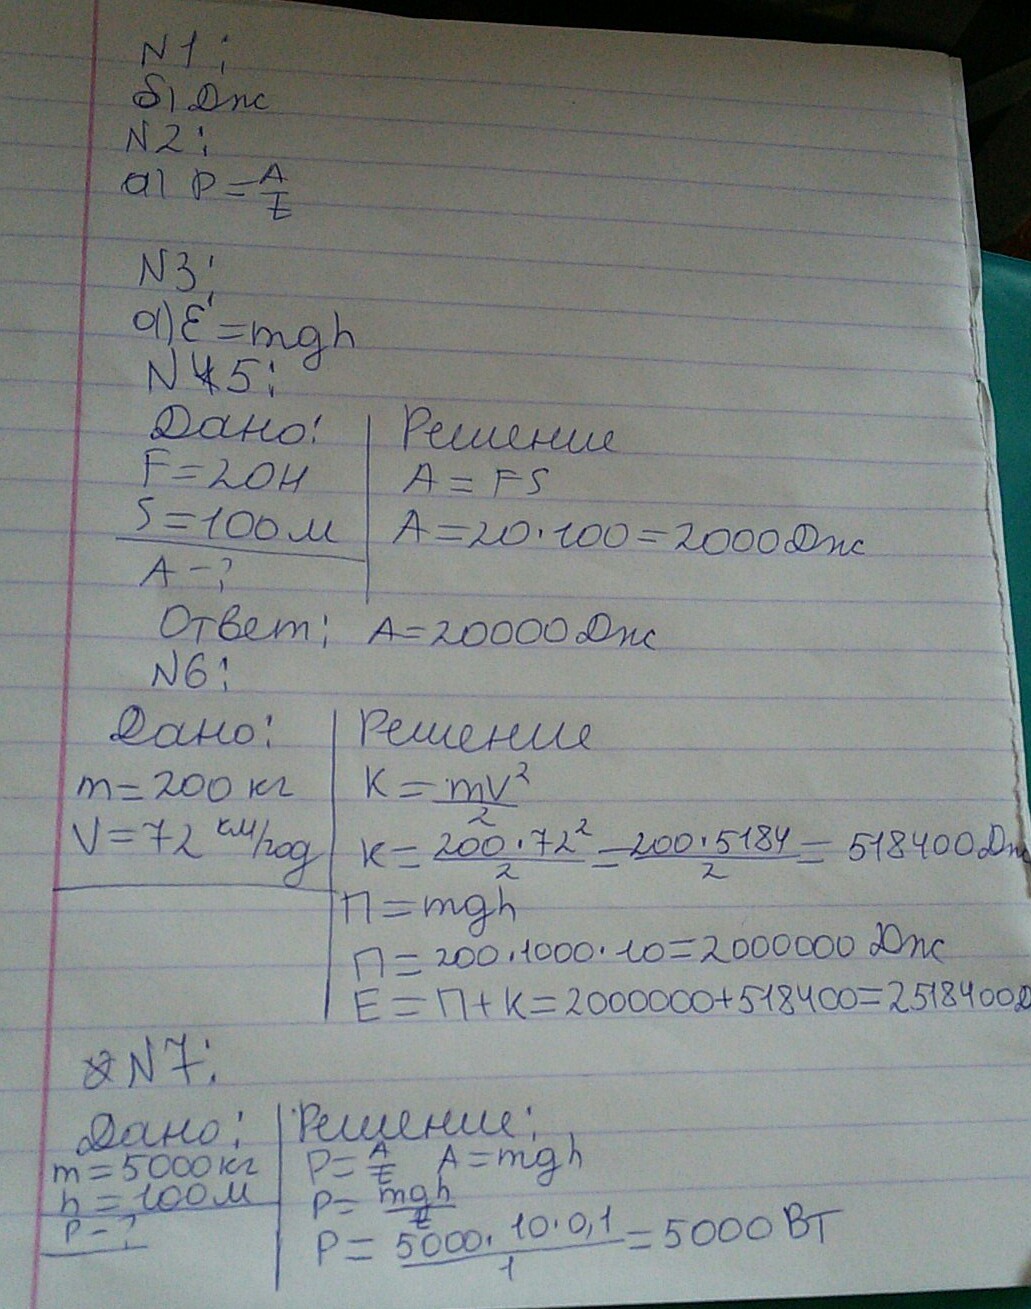 N1:
б) Дж
N2:
а) P = A/t
N3:
а) Ɛ' = mgh
N 5:
Дано: Решение
F = 20Н A = FS
S = 100м A = 20·100 = 2000 Дж
A - ?
Ответ: A = 20000 Дж
N6:
Дано: Решение
m = 200 кг K = mV²/2
V = 72 км/год K = 200·72²/2 = 200·5184/2 = 518400 Дж
П = mgh
П = 200·1000·10 = 2000000 Дж
E = П + K = 2000000 + 518400 = 2518400 Д
N7:
Дано: Решение:
m = 5000кг P = A/t A = mgh
h = 100м P = mgh/t
P - ? P = 5000·10·0,1/1 = 5000 ВТ